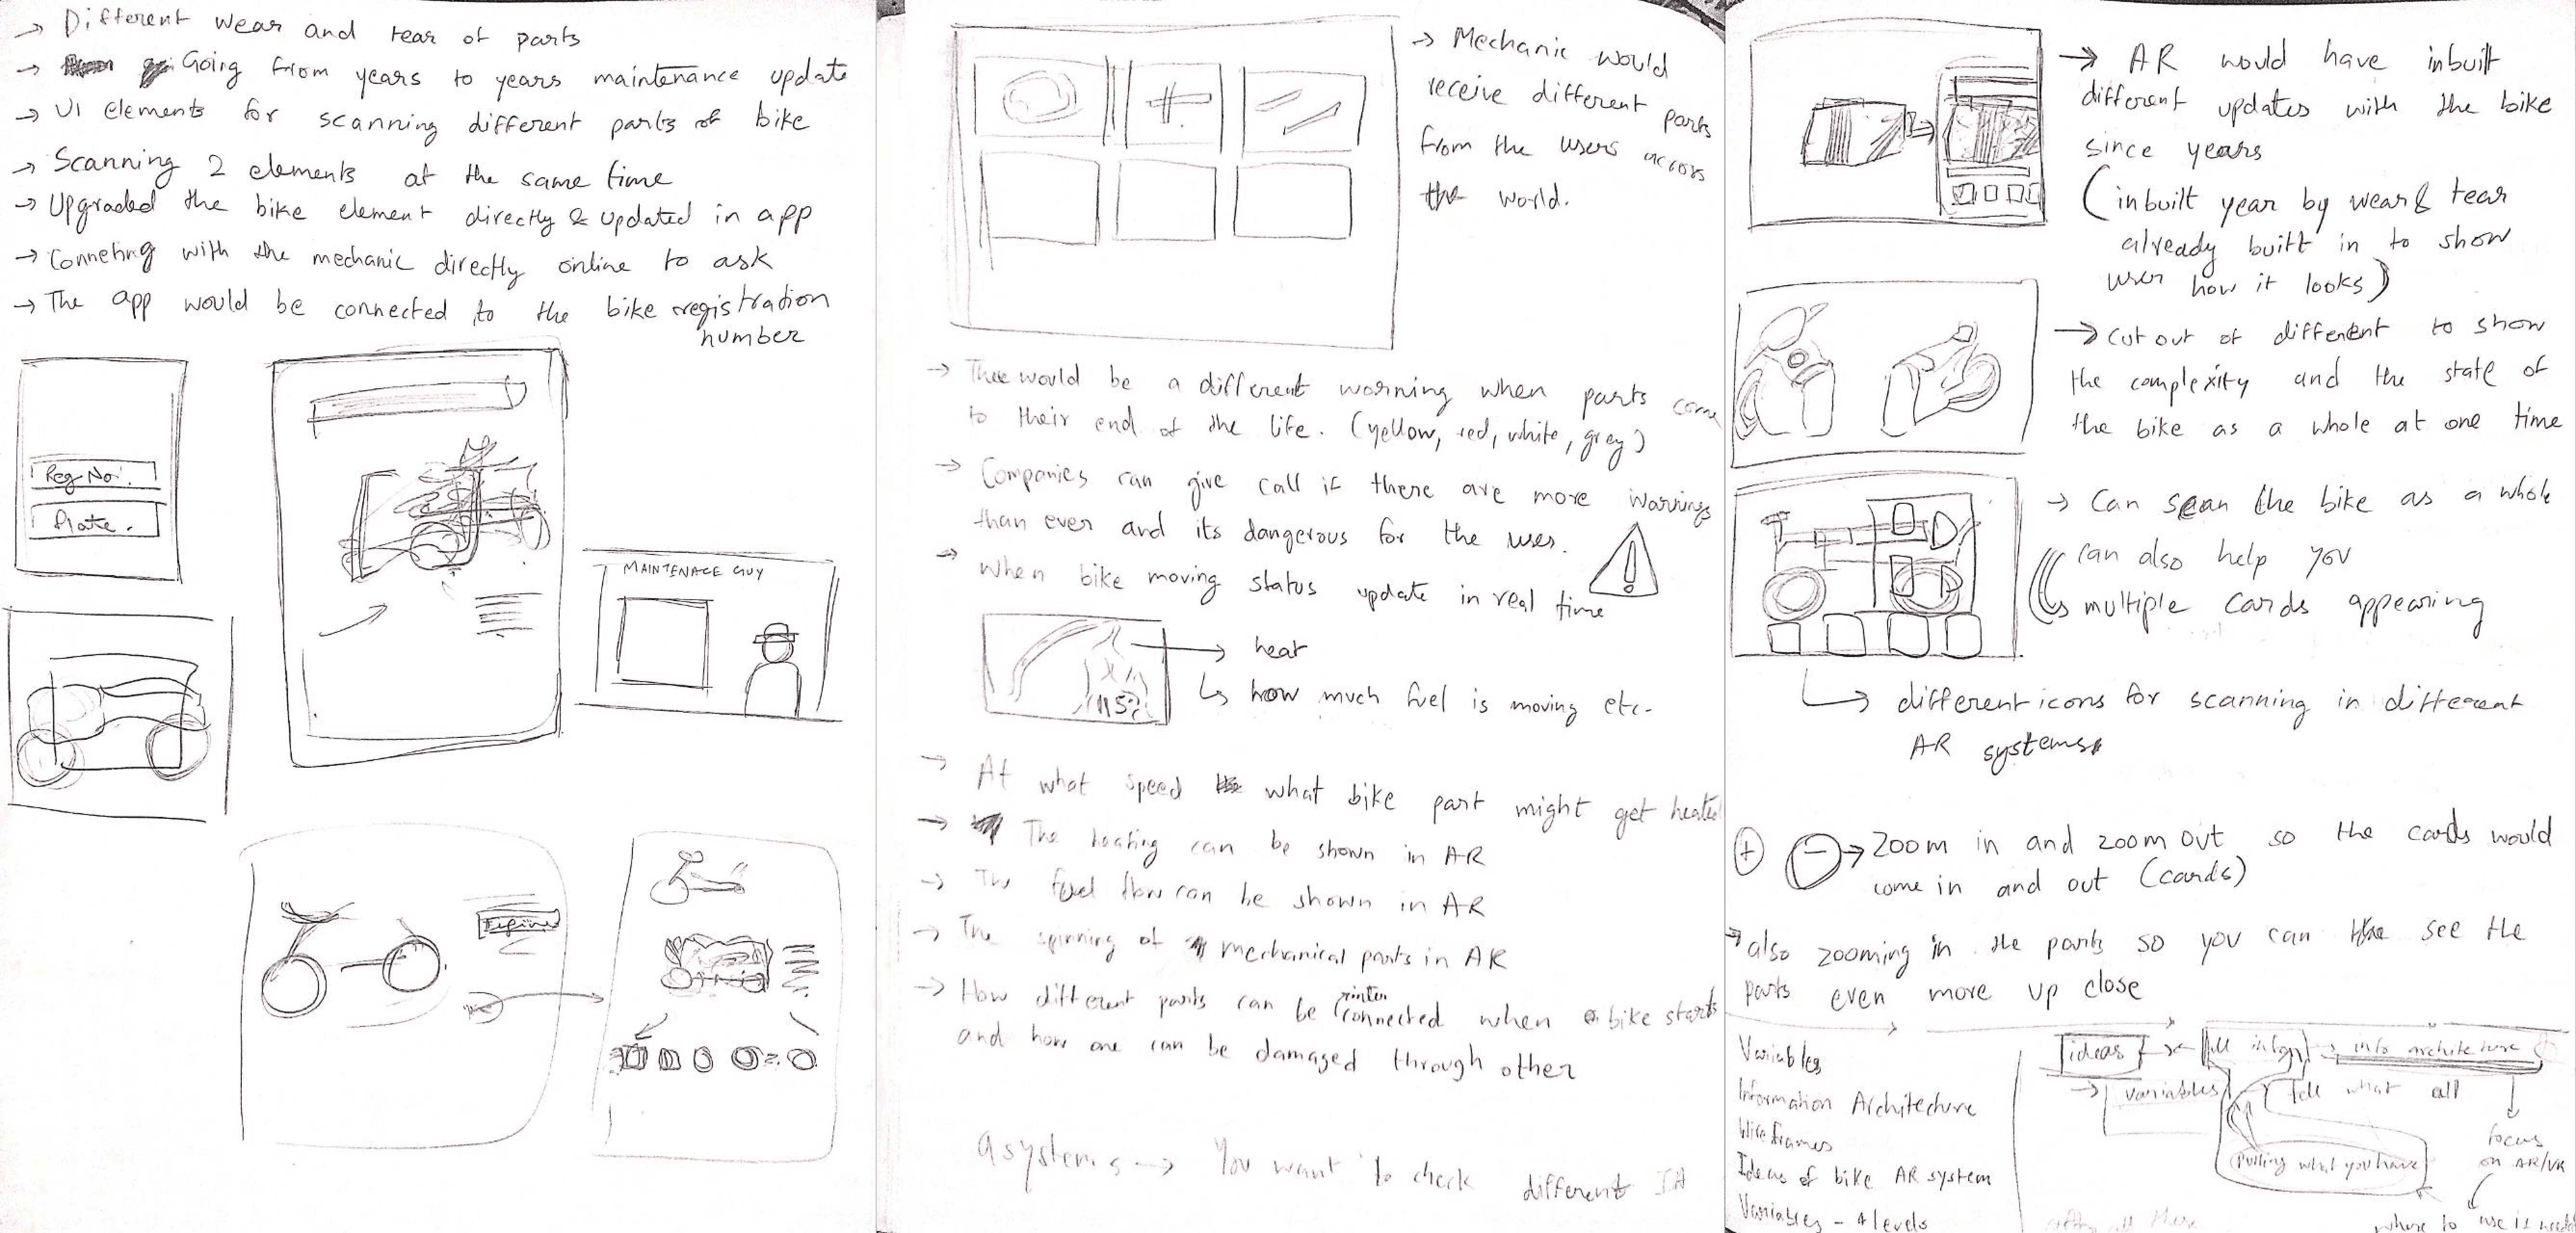 → Different wear and tear of parts
→ Going from years to years maintenance update
→ UI elements for scanning different parts of bike
→ Scanning 2 elements at the same time
→ Upgraded the bike element directly & updated in app
→ Conneting with the mechanic directly online to ask
→ The app would be connected to the bike registration
number
Reg No.
Plate.
MAINTENACE GUY
Engine
→ Mechanic would
receive different parts
from the users across
the world.
→ Thee would be a different warning when parts come
to their end of the life. (yellow, red, white, grey)
→ Companies can give call if there are more warnings
than ever and its dangerous for the user.
→ When bike moving status update in real time
→ heat
↳ how much fuel is moving etc.
→ At what speed what bike part might get heated
→ The heating can be shown in AR
→ The fuel flow can be shown in AR
→ The spinning of mechanical parts in AR
→ How different parts can be inter
connected when bike starts
and how one can be damaged through other
systems → You want to check different IA
→ AR would have inbuilt
different updates with the bike
since years
(inbuilt year by wear & tear
already built in to show
user how it looks)
→ Cut out of different to show
the complexity and the state of
the bike as a whole at one time
→ Can scan the bike as a whole
can also help you
multiple cards appearing
↳ different icons for scanning in different
AR systems
+ - → Zoom in and zoom out so the cards would
come in and out (cards)
→ also zooming in the parts so you can see the
parts even more up close
Variables
Information Architecture
Wireframes
Ideas of bike AR system
Variables - 4 levels
ideas
info architecture
→ variables
Tell what all
Putting what you have
focus
on AR/VR
where to use is